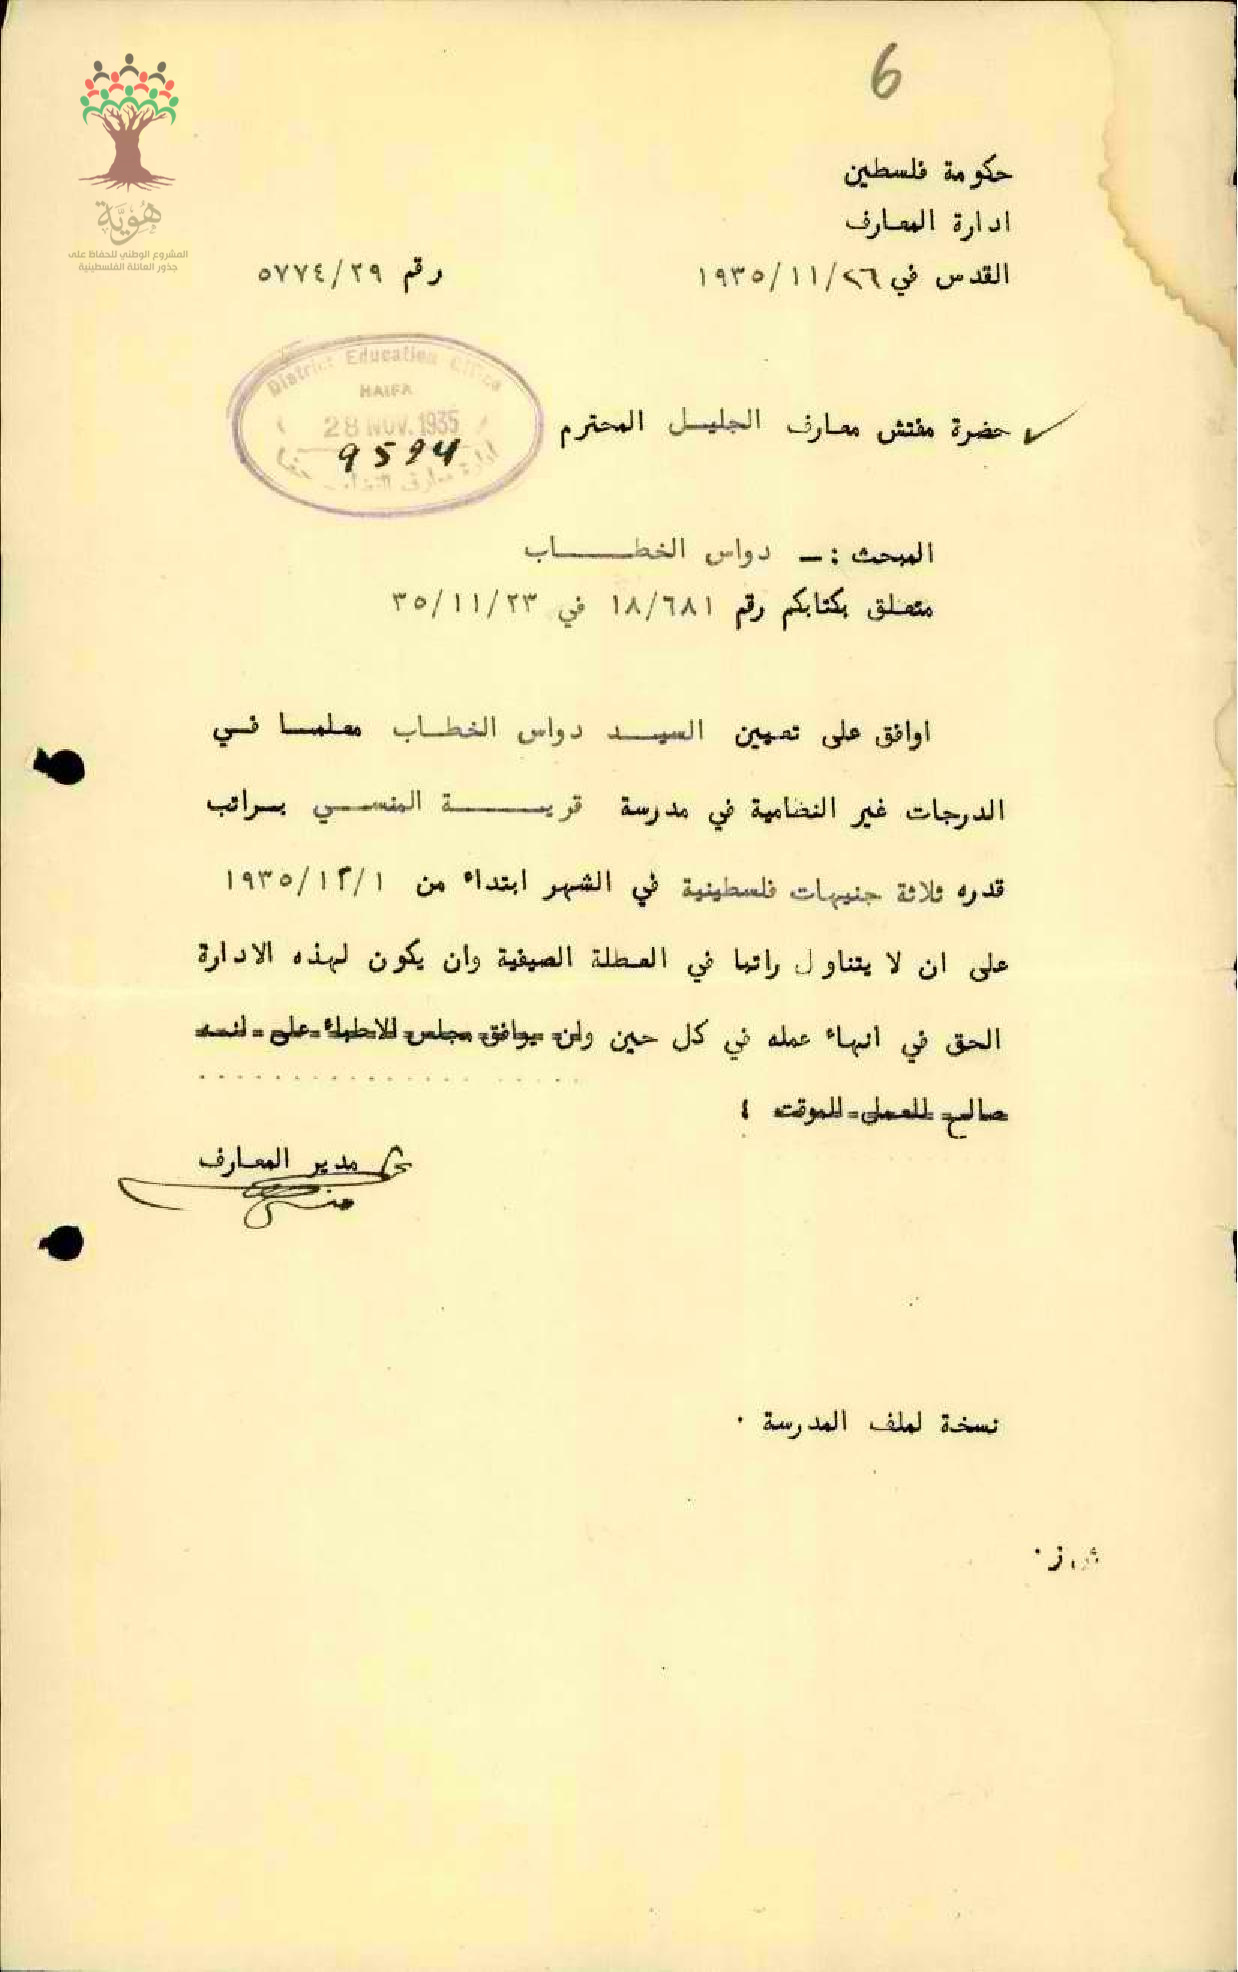 6
هُوِيَّة
المشروع الوطني للحفاظ على
جذور العائلة الفلسطينية
حكومة فلسطين
ادارة المعارف
القدس في ٢٦/١١/١٩٣٥ رقم ٥٧٧٤/٢٩
District Education Office
HAIFA
28 NOV. 1935
9594
حضرة مفتش معارف الجليل المحترم
المبحث :ـ دواس الخطاب
متعلق بكتابكم رقم ١٨/٦٨١ في ٣٥/١١/٢٣
اوافق على تعيين السيد دواس الخطاب معلما في
الدرجات غير النظامية في مدرسة قرية المنسي براتب
قدره ثلاثة جنيهات فلسطينية في الشهر ابتداء من ١٩٣٥/١٢/١
على ان لا يتناول راتبا في العطلة الصيفية وان يكون لهذه الادارة
الحق في انهاء عمله في كل حين وان يوافق مجلس الاطباء على انه
صالح للعمل الموقت
مدير المعارف
نسخة لملف المدرسة ٠